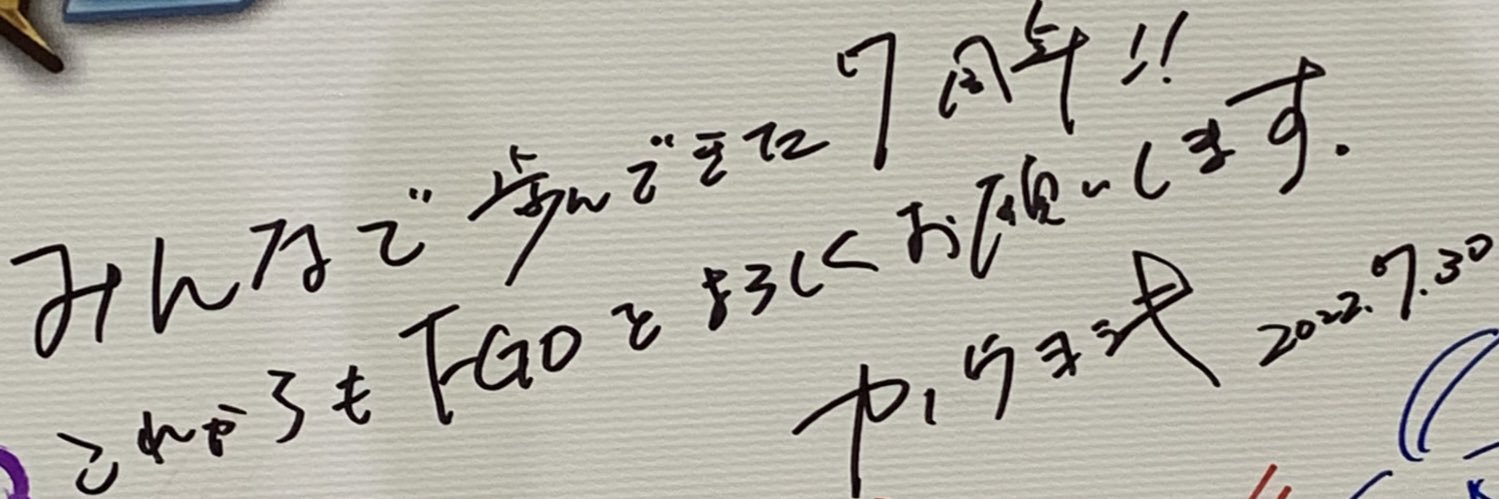 みんなで歩んできた7周年!!
これからもFGOをよろしくお願いします.
2022.7.30